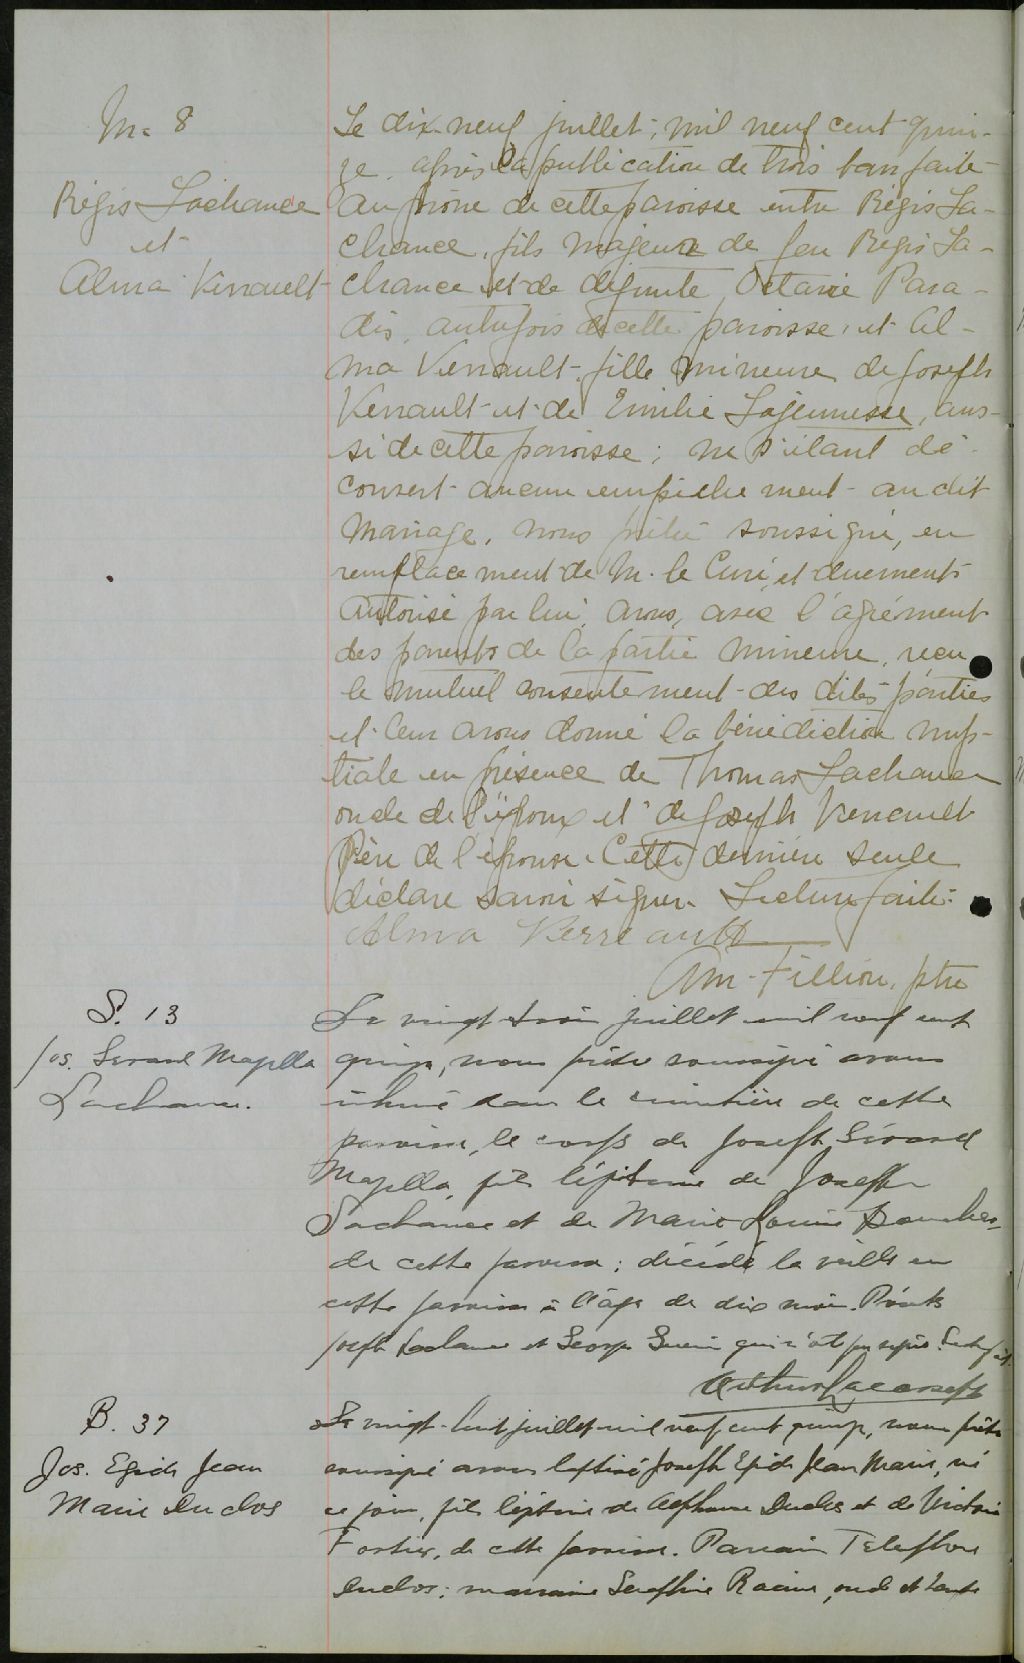 M. 8
Régis Lachance
et
Alma Verrault
Le dix-neuf juillet, mil neuf cent quin-
ze, après la publication de trois bans faite
au prône de cette paroisse entre Régis La-
chance, fils majeur de feu Régis La-
chance et de défunte Octavie Para-
dis, autrefois de cette paroisse, et Al-
ma Verrault, fille mineure de Joseph
Verrault et de Emilie Lajeunesse, aus-
si de cette paroisse; ne s'étant dé-
couvert aucun empêchement au dit
mariage, nous prêtre soussigné, en
remplacement de M. le Curé, et duement
autorisé par lui, avons, avec l'agrément
des parents de la partie mineure, reçu
le mutuel consentement des dites parties
et leur avons donné la bénédiction nup-
tiale en présence de Thomas Lachance
oncle de l'époux et de Joseph Verrault
Père de l'épouse. Cette dernière seule
déclare savoir signer. Lecture faite.
Alma Verreault
Am. Fillion, ptre
S. 13
Jos. Gérard Majella
Lachance.
Le vingt trois juillet mil neuf cent
quinze, nous prêtre soussigné avons
inhumé dans le cimetière de cette
paroisse, le corps de Joseph Gérard
Majella, fils légitime de Joseph
Lachance et de Marie Louise
de cette paroisse; décédé la veille en
cette paroisse à l'âge de dix mois. Présents
Joseph Lachance et George qui n'ont pu signer. Lect. faite.
Arthur
B. 37
Jos. Egide Jean
Marie Duclos
Le vingt-huit juillet mil neuf cent quinze, nous prêtre
soussigné avons baptisé Joseph Egide Jean Marie, né
ce jour, fils légitime de Alphonse Duclos et de Victoria
Fortier, de cette paroisse. Parrain Télesphore
Duclos; marraine Séraphine Racine, oncle et tante